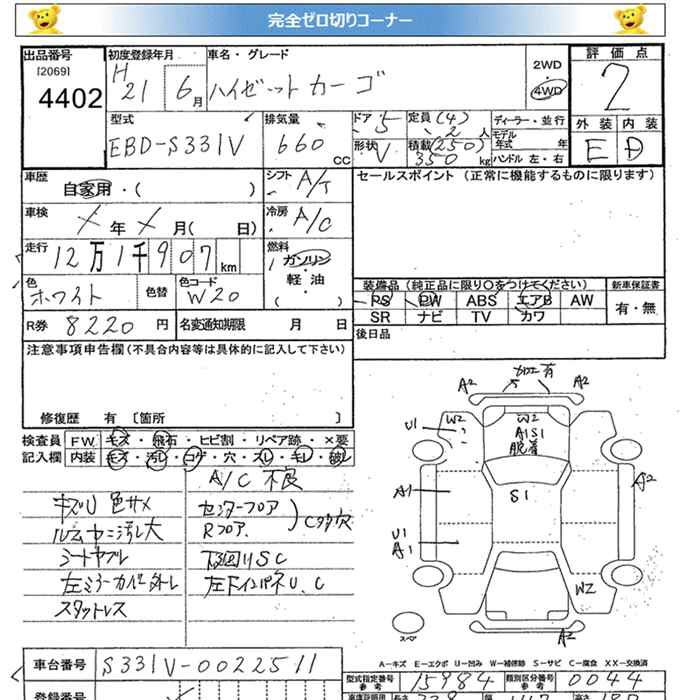 完全ゼロ切りコーナー
出品番号 初度登録年月 車名・グレード 2WD 評価点
[2069] 4402 H21 6月 ハイゼットカーゴ 4WD 2
型式 排気量 ドア 5 定員(4) 2人 ディーラー・並行 外装 内装
EBD-S331V 660cc 形状 V 積載(250) 350kg モデル年式 年 ハンドル 左・右 E D
車歴 自家用・( ) シフト A/T セールスポイント(正常に機能するものに限ります)
車検 X年X月( 日) 冷房 A/C
走行 12万1千907km 燃料 ガソリン
軽油
( )
色 ホワイト 色替 色コード W20 装備品(純正品に限り○をつけてください) 新車保証書
PS PW ABS エアB AW 有・無
SR ナビ TV カワ
R券 8220円 名変通知期限 月 日 後日品
注意事項申告欄(不具合内容等は具体的に記入して下さい)
修復歴 有 〔箇所 〕
検査員 FW キズ・飛石・ヒビ割・リペア跡・×要
記入欄 内装 キズ・汚レ・コゲ・穴・スレ・キレ・破レ
A/C 不良
キズU 色サメ センターフロア
Rフロア
シートヤブレ
左ミラーカバー外レ
スタットレス
A2 A2
U1 W2 W2
A1S1
脱着
A1 S1 A2
U1
A1
W2
スペア A2
A-キズ E-エクボ U-凹み W-補修跡 S-サビ C-腐食 XX-交換済
車台番号 S331V-0022511 型式指定番号 参考 15984 類別区分番号 参考 0044
登録番号